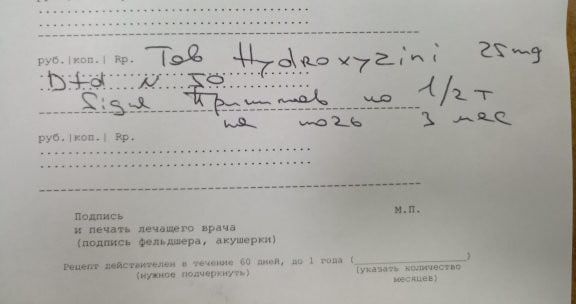 руб.|коп.| Rp. Tab Hydroxyzini 25mg
Dtd N 50
Signe Принимать по 1/2 т
на ночь 3 мес
руб.|коп.| Rp.
Подпись М.П.
и печать лечащего врача
(подпись фельдшера, акушерки)
Рецепт действителен в течение 60 дней, до 1 года (____________________)
(нужное подчеркнуть) (указать количество
месяцев)